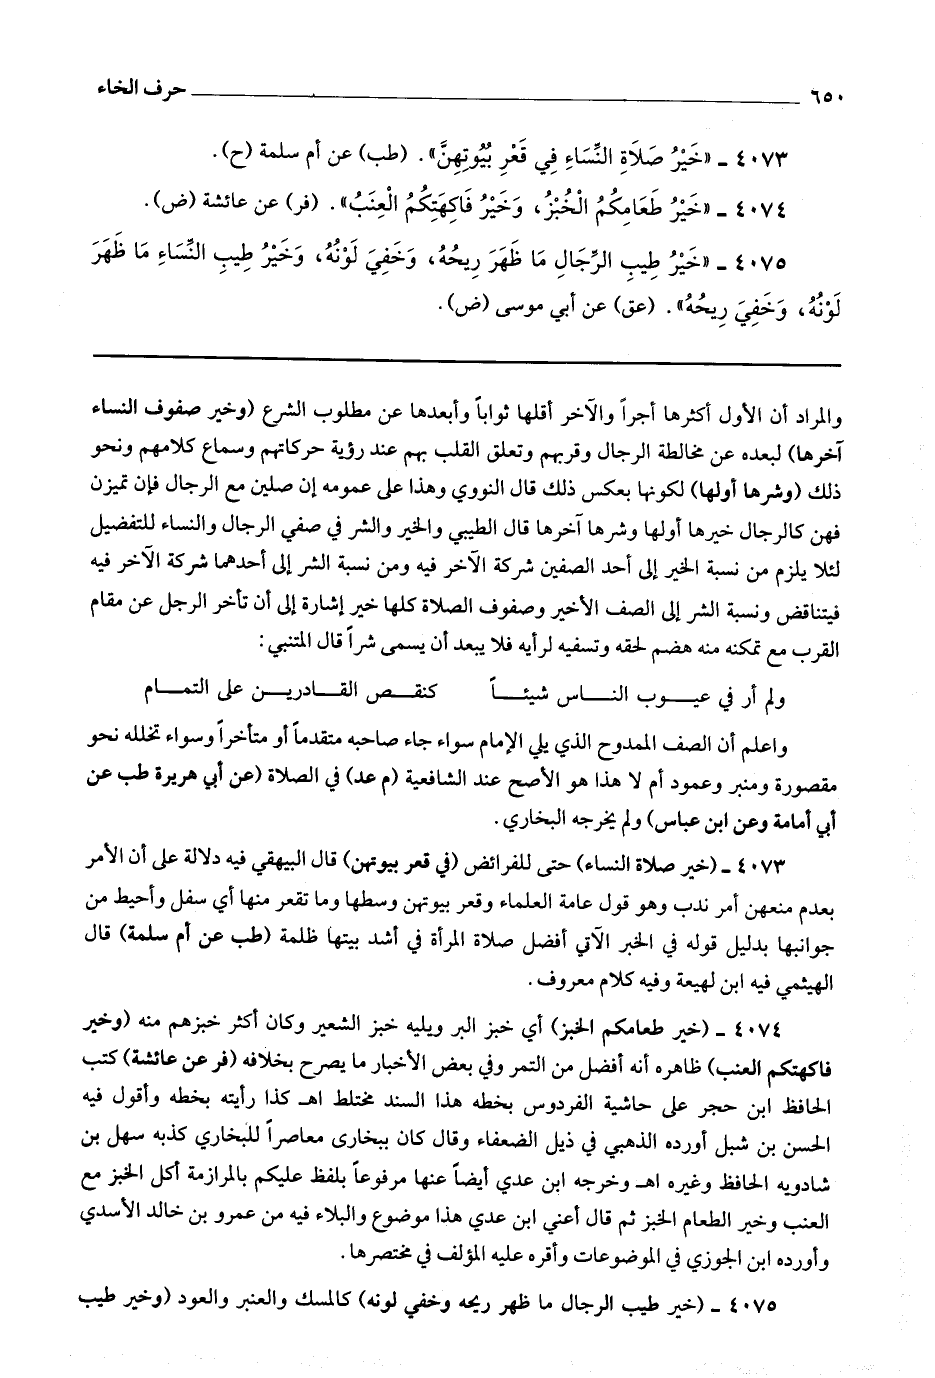 ٦٥٠ حرف الخاء
٤٠٧٣ ـ «خَيْرُ صَلَاةِ النِّسَاءِ فِي قَعْرِ بُيُوتِهِنَّ». (طب) عن أم سلمة (ح).
٤٠٧٤ ـ «خَيْرُ طَعَامِكُمُ الْخُبْزُ، وَخَيْرُ فَاكِهَتِكُمُ الْعِنَبُ». (فر) عن عائشة (ض).
٤٠٧٥ ـ «خَيْرُ طِيبِ الرِّجَالِ مَا ظَهَرَ رِيحُهُ، وَخَفِيَ لَوْنُهُ، وَخَيْرُ طِيبِ النِّسَاءِ مَا ظَهَرَ
لَوْنُهُ، وَخَفِيَ رِيحُهُ». (عق) عن أبي موسى (ض).
والمراد أن الأول أكثرها أجراً والآخر أقلها ثواباً وأبعدها عن مطلوب الشرع (وخير صفوف النساء
آخرها) لبعده عن مخالطة الرجال وقربهم وتعلق القلب بهم عند رؤية حركاتهم وسماع كلامهم ونحو
ذلك (وشرها أولها) لكونها بعكس ذلك قال النووي وهذا على عمومه إن صلين مع الرجال فإن تميزن
فهن كالرجال خيرها أولها وشرها آخرها قال الطيبي والخير والشر في صفي الرجال والنساء للتفضيل
لئلا يلزم من نسبة الخير إلى أحد الصفين شركة الآخر فيه ومن نسبة الشر إلى أحدهما شركة الآخر فيه
فيتناقض ونسبة الشر إلى الصف الأخير وصفوف الصلاة كلها خير إشارة إلى أن تأخر الرجل عن مقام
القرب مع تمكنه منه هضم لحقه وتسفيه لرأيه فلا يبعد أن يسمى شراً قال المتنبي:
ولم أر في عيــوب النــاس شيئــاً كنقــص القــادريــن على التمــام
واعلم أن الصف الممدوح الذي يلي الإمام سواء جاء صاحبه متقدماً أو متأخراً وسواء تخلله نحو
مقصورة ومنبر وعمود أم لا هذا هو الأصح عند الشافعية (م عد) في الصلاة (عن أبي هريرة طب عن
أبي أمامة وعن ابن عباس) ولم يخرجه البخاري.
٤٠٧٣ ـ (خير صلاة النساء) حتى للفرائض (في قعر بيوتهن) قال البيهقي فيه دلالة على أن الأمر
بعدم منعهن أمر ندب وهو قول عامة العلماء وقعر بيوتهن وسطها وما تقعر منها أي سفل وأحيط من
جوانبها بدليل قوله في الخبر الآتي أفضل صلاة المرأة في أشد بيتها ظلمة (طب عن أم سلمة) قال
الهيثمي فيه ابن لهيعة وفيه كلام معروف.
٤٠٧٤ ـ (خير طعامكم الخبز) أي خبز البر ويليه خبز الشعير وكان أكثر خبزهم منه (وخير
فاكهتكم العنب) ظاهره أنه أفضل من التمر وفي بعض الأخبار ما يصرح بخلافه (فر عن عائشة) كتب
الحافظ ابن حجر على حاشية الفردوس بخطه هذا السند مختلط اهـ كذا رأيته بخطه وأقول فيه
الحسن بن شبل أورده الذهبي في ذيل الضعفاء وقال كان ببخارى معاصراً للبخاري كذبه سهل بن
شادويه الحافظ وغيره اهـ وخرجه ابن عدي أيضاً عنها مرفوعاً بلفظ عليكم بالمرازمة أكل الخبز مع
العنب وخير الطعام الخبز ثم قال أعني ابن عدي هذا موضوع والبلاء فيه من عمرو بن خالد الأسدي
وأورده ابن الجوزي في الموضوعات وأقره عليه المؤلف في مختصرها.
٤٠٧٥ ـ (خير طيب الرجال ما ظهر ريحه وخفي لونه) كالمسك والعنبر والعود (وخير طيب